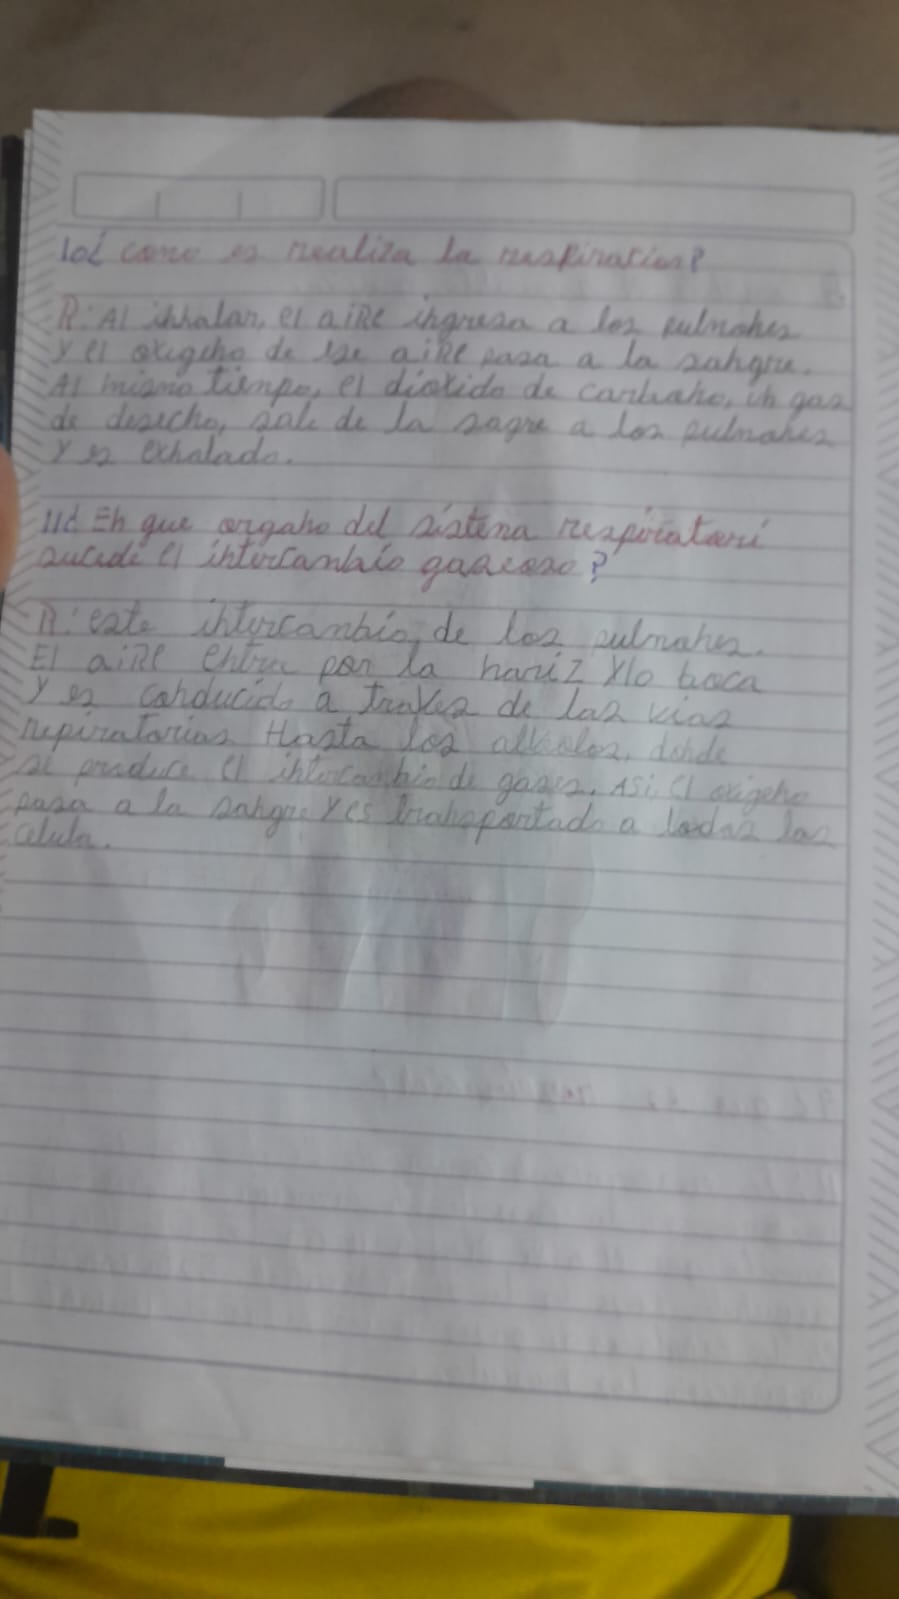 10¿ como es realiza la respiracion?
R: Al inhalar, el aire ingresa a los pulmones
y el oxigeno de ese aire pasa a la sangre.
Al mismo tiempo, el dioxido de carbono, un gas
de desecho, sale de la sagre a los pulmones
y es exhalado.
11¿ En que organo del sistema respiratori
sucede el intercambio gaseoso?
R: este intercambio de los pulmones.
El aire entra por la nariz y lo boca
y es conducido a traves de las vias
repiratorias Hasta los alveolos, donde
se produce el intercambio de gases. Asi, el oxigeno
pasa a la sangre y es transportado a todas las
celula.